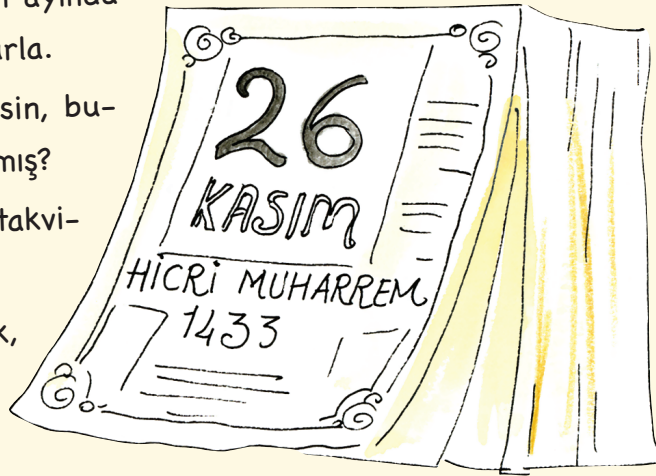 ayında
arla.
sin, bu-
mış?
takvi-
k,
26
KASIM
HİCRİ MUHARREM
1433